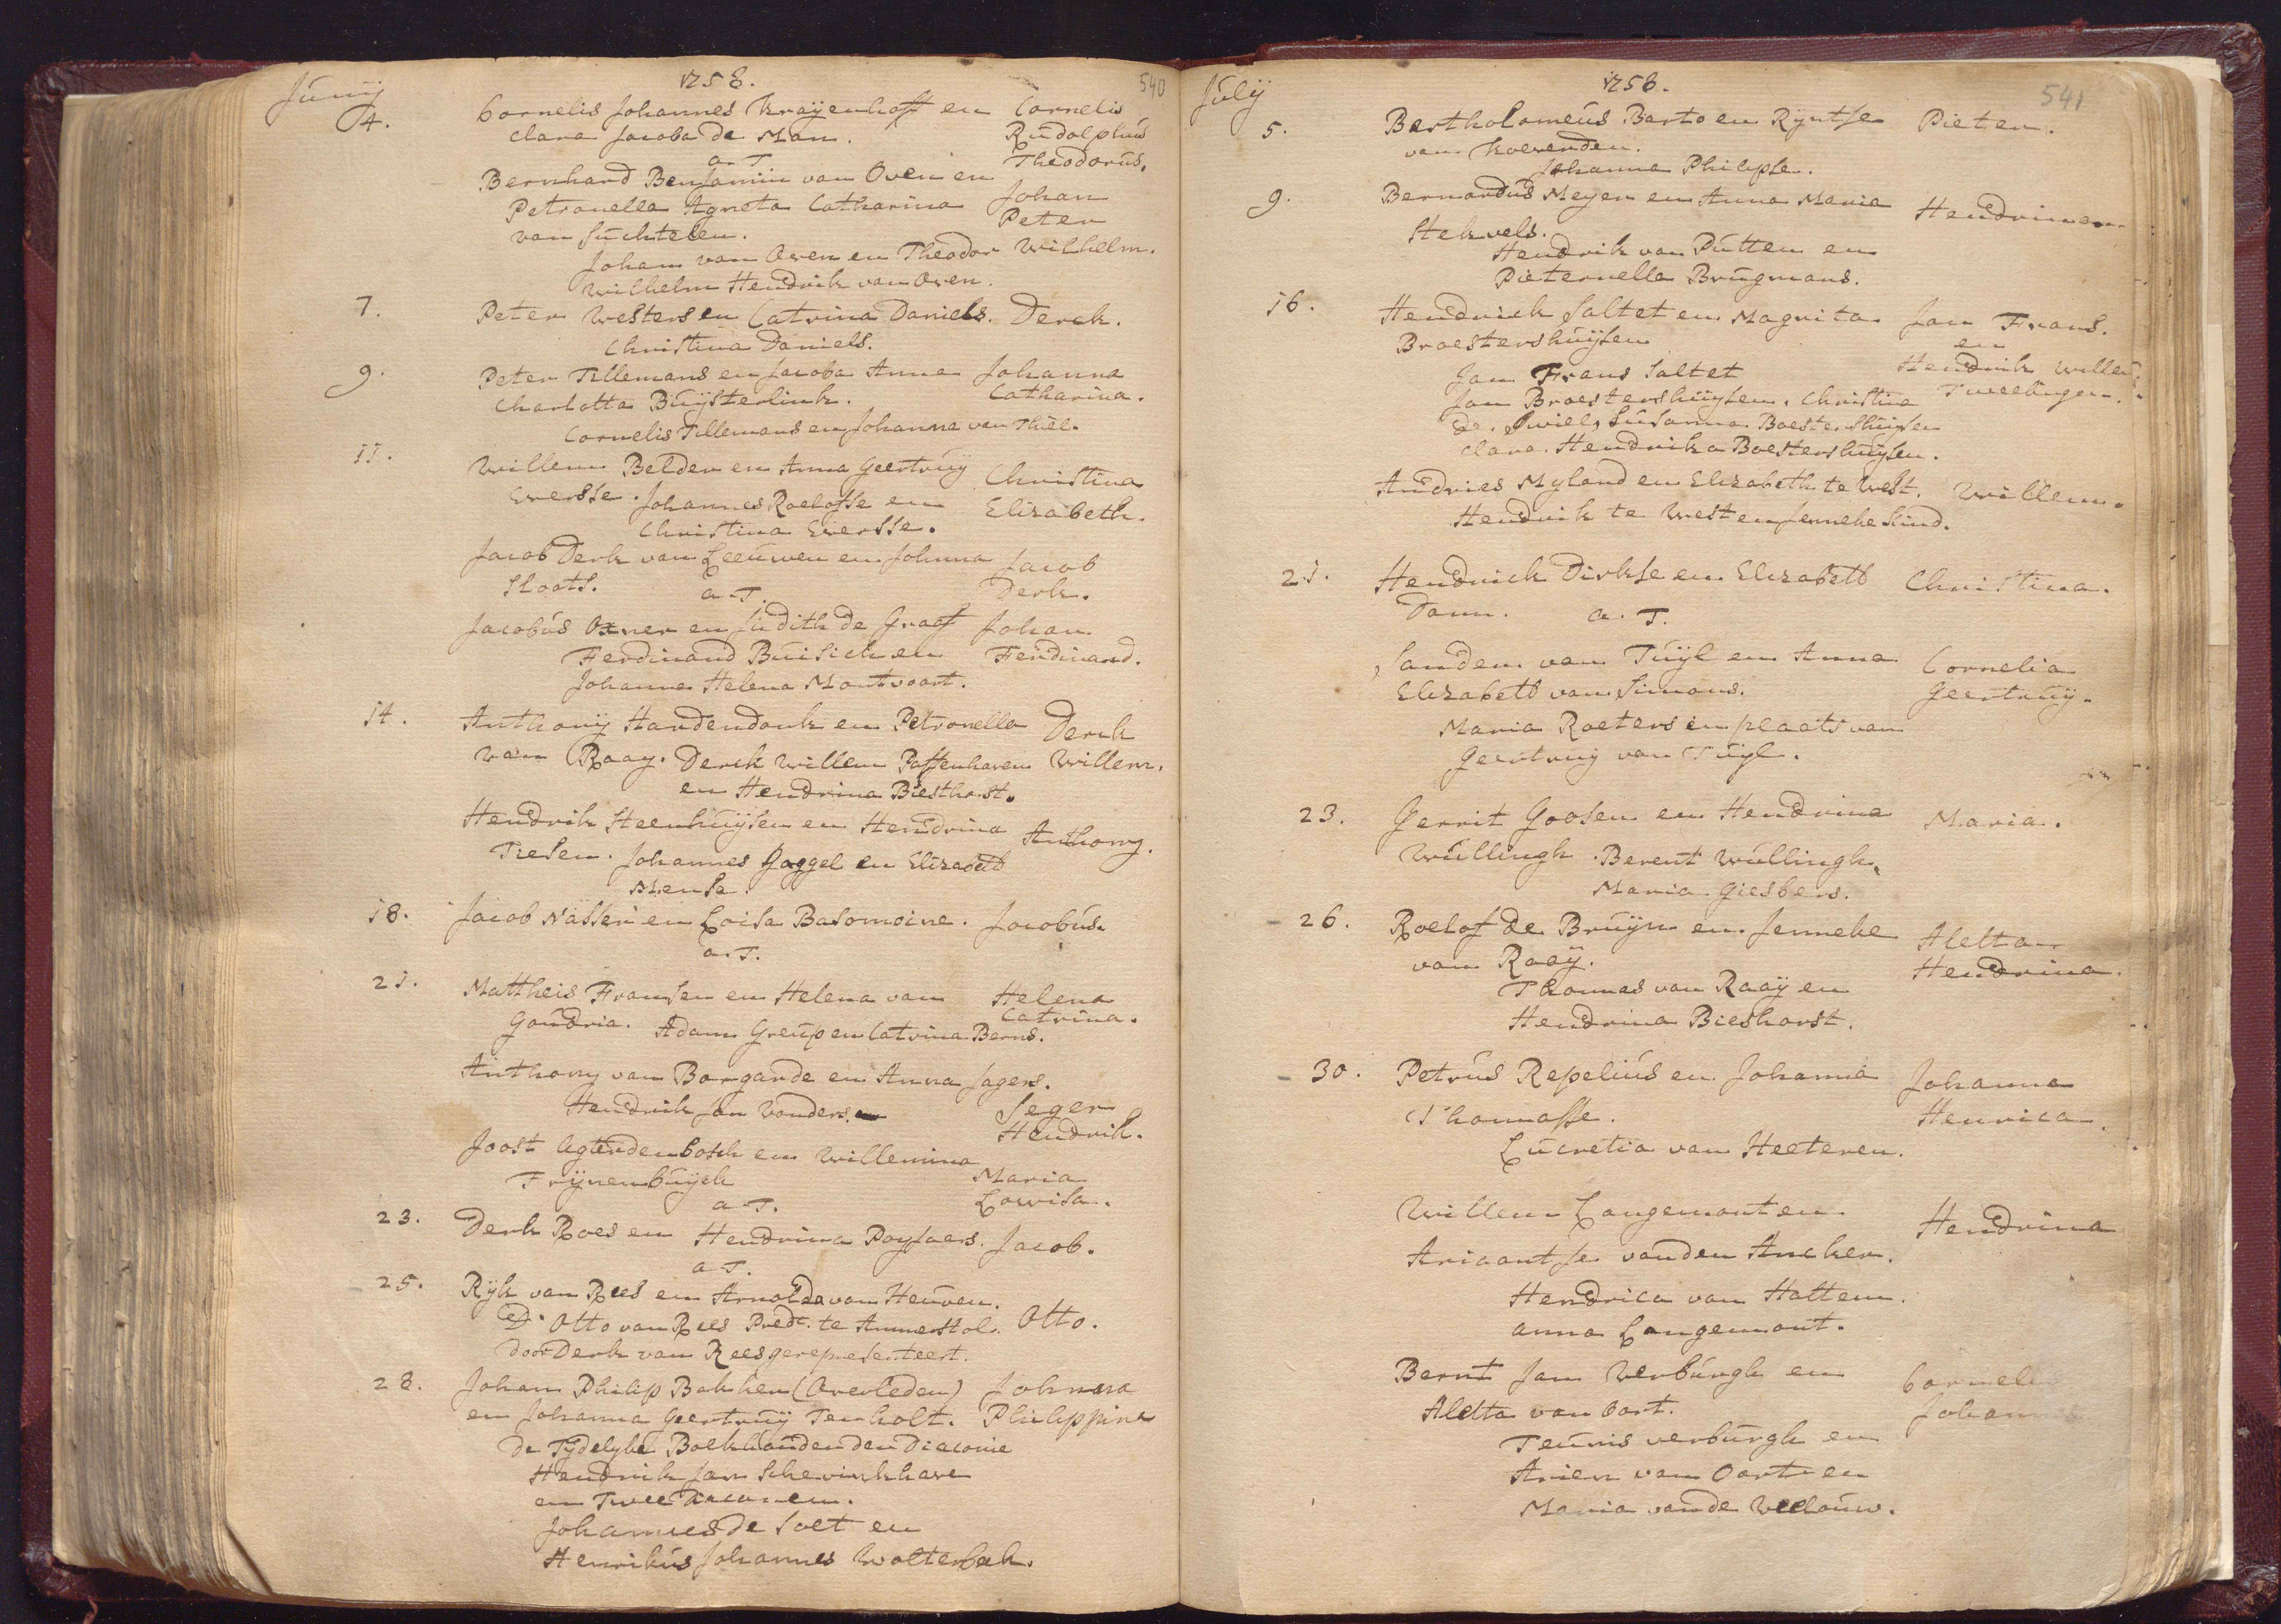 Junij 1758. 540
4. Cornelis Johannes Kraÿenhoff en Cornelis
Clara Jacoba de Man. Rudolphus
a. T. Theodorus.
Bernhard Benjamin van Oven en
Petronella Agneta Catharina Johan
van Suchtelen. Peter
Johan van Oven en Theodor Wilhelm.
Wilhelm Hendrik van Oven.
7. Peter Westers en Catrina Daniels. Derck.
Christina Daniels.
9. Peter Tillemans en Jacoba Anna Johanna
Charlotta Buÿsterlink. Catharina.
Cornelis Tillemans en Johanna van Thiel.
11. Willem Belder en Anna Geertruÿ Christina
Eversse. Johannes Roelofse en Elizabeth.
Christina Eversse.
Jacob Derk van Leeuwen en Johanna Jacob
Sloots. a. T. Derk.
Jacobus Oxner en Judith de Graaf Johan
Ferdinand Buisich en Ferdinand.
Johanna Helena Montvoort.
14. Anthonÿ Hardendonk en Petronella Derck
van Raaÿ. Derck Willem Passenhaven Willem.
en Hendrina Biesthorst.
Hendrik Steenhuÿsen en Hendrina Anthonÿ.
Tiesen. Johannes Gaggel en Elizabet
Mensa.
18. Jacob Nässer en Loisa Basomoine. Jacobus.
a. T.
21. Mattheis Fransen en Helena van Helena
Goudria. Adam Greup en Catrina Berns. Catrina.
Anthony van Bongarde en Anna Jagers.
Hendrik Jan Vonders. Seger
Hendrik.
Joost Agterdenbosch en Willemina
Frÿnenbuÿck Maria
a. T. Lowisa.
23. Derk Roes en Hendrina Poysaers. Jacob.
a. T.
25. Rÿk van Rees en Arnolda van Heuven.
Ds. Otto van Rees Predt. te Ammerstol. Otto.
door Derk van Rees gerepresenteert.
28. Johan Philip Bakker (Overleden) Johanna
en Johanna Geertruÿ Tenholt. Philippina
De Tÿdelyke Boekhouder den Diaconie
Hendrik Jan Schevinkhave
en Twee Diaconen.
Johannes de Soet en
Henrikus Johannes Wolterbeek.
Julÿ 1758. 541
5. Bartholomeus Barto en Ryntse Pieter.
van Koevenden.
Johanna Philipse.
9. Bernardus Meyer en Anna Maria Hendrina
Stekvels.
Hendrik van Putten en
Pieternella Brugmans.
16. Hendrick Saltet en Magrita Jan Frans.
Broestershuÿsen en
Jan Frans Saltet Hendrik Willem
Jan Broestershuÿsen. Christina Tweelingen.
de Swiel, Susanna Boestershuÿsen
Clara Hendrika Boestershuÿsen.
Andries Myland en Elizabeth te West. Willem.
Hendrik te West en Jenneke Sind.
21. Hendrick Dirkse en Elizabeth Christina.
Dam. a. T.
Sander van Tuÿl en Anna Cornelia
Elizabeth van Simons. Geertruÿ.
Maria Roeters in plaats van
Geertruÿ van Tuÿl.
23. Gerrit Goosen en Hendrina Maria.
Wullingh. Berent Wullingh,
Maria Giesbers.
26. Roelof de Bruÿn en Jenneke Aletta
van Raaÿ. Hendrina.
Thomas van Raaÿ en
Hendrina Bieshorst.
30. Petrus Repelius en Johanna Johanna
Thomasse. Henrica.
Lucretia van Heeteren.
Willem Langemont en Hendrina
Ariaantje van den Ancker.
Hendrica van Hattem.
anna Langemont.
Bernt Jan Verburgh en Cornelis
Aletta van Oort. Johannes
Teunis verburgh en
Arien van Oort en
Maria van de Weelouw.